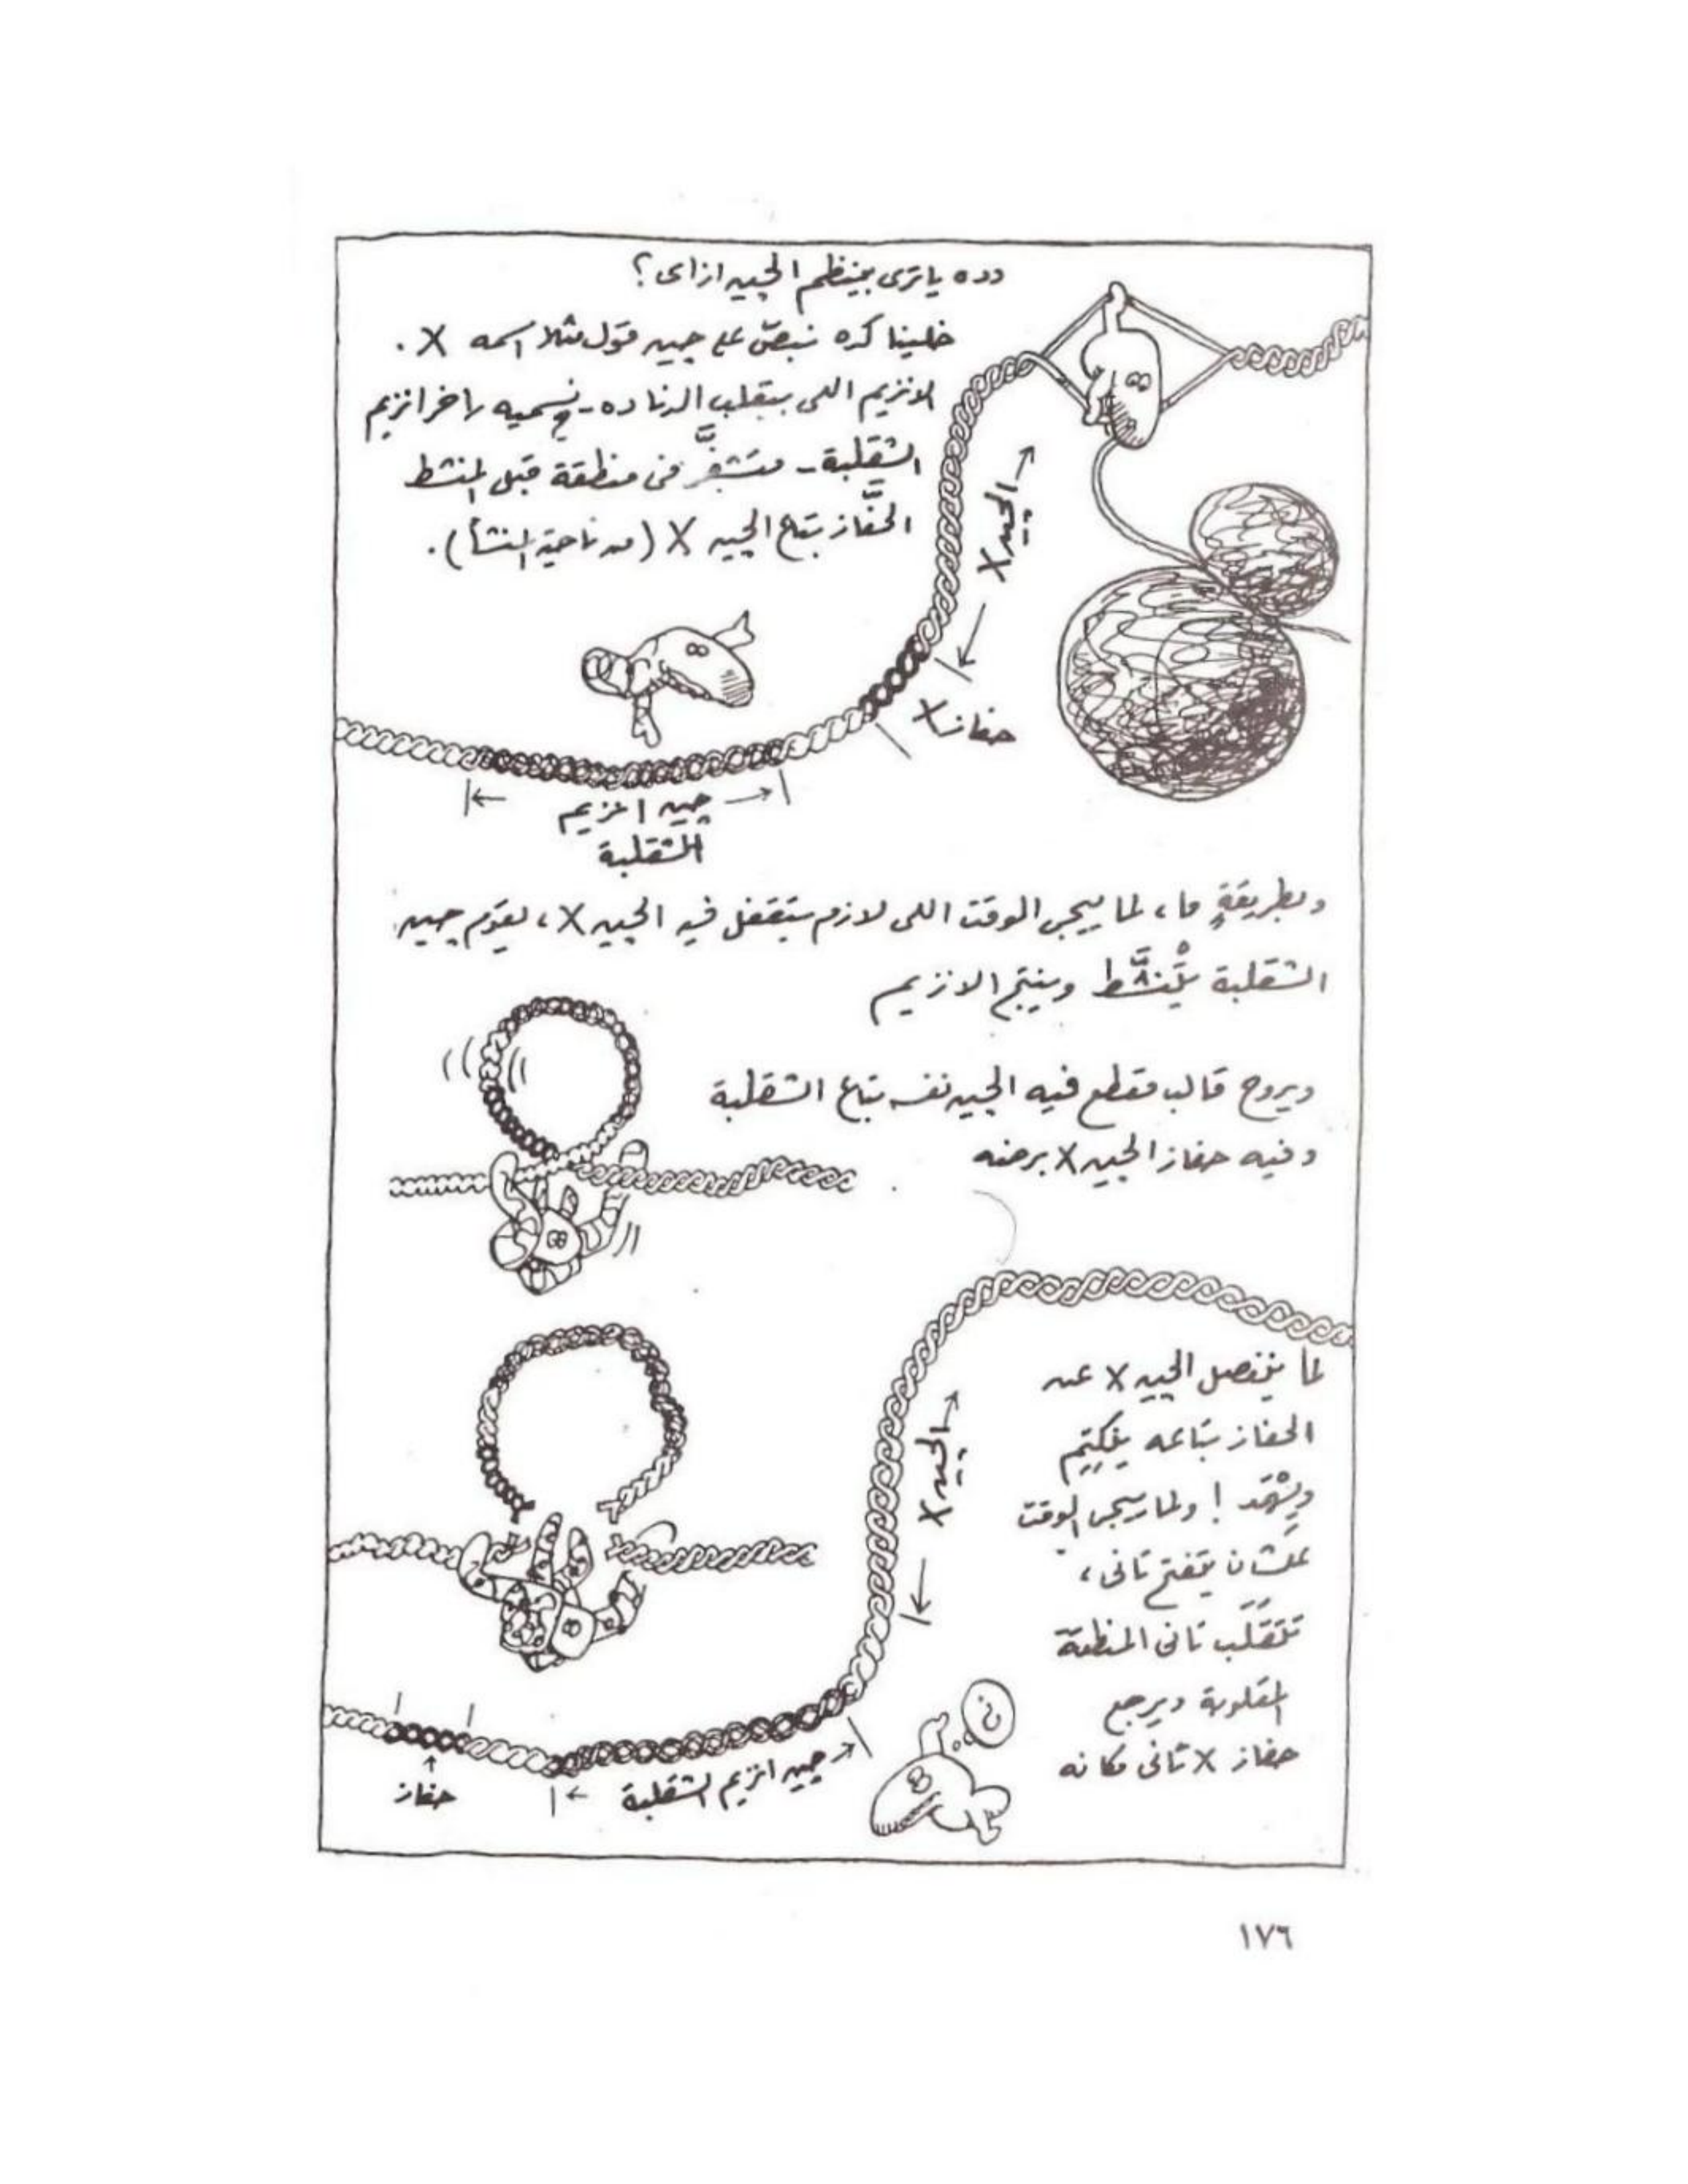 وده ياترى بينظم الچين ازاى؟
خلينا كده نبص على چين قول مثلا اسمه X .
الانزيم اللى بيقلب الدنا ده - ح نسميه راخر انزيم
الشقلبة - متشفر فى منطقة قبل المنشط
الحفَّاز بتاع الچين X (من ناحية المنشأ) .
الچين X
حفاز X
چين انزيم
الشقلبة
وبطريقةٍ ما، لما ييجى الوقت اللى لازم يتقفل فيه الچين X ، يقوم چين
الشقلبة يتنشَّط وينتج الانزيم
ويروح قالب مقطع فيه الچين نفسه بتاع الشقلبة
وفيه حفاز الچين X برضه
لما ينفصل الچين X عن
الحفاز بتاعه ينكتم
ويهمد ! ولما ييجى الوقت
علشان يتفتح تانى ،
تتقلب تانى المنطقة
المقلوبة ويرجع
حفاز X تانى مكانه
الچين X
؟
چين انزيم الشقلبة
حفاز
١٧٦